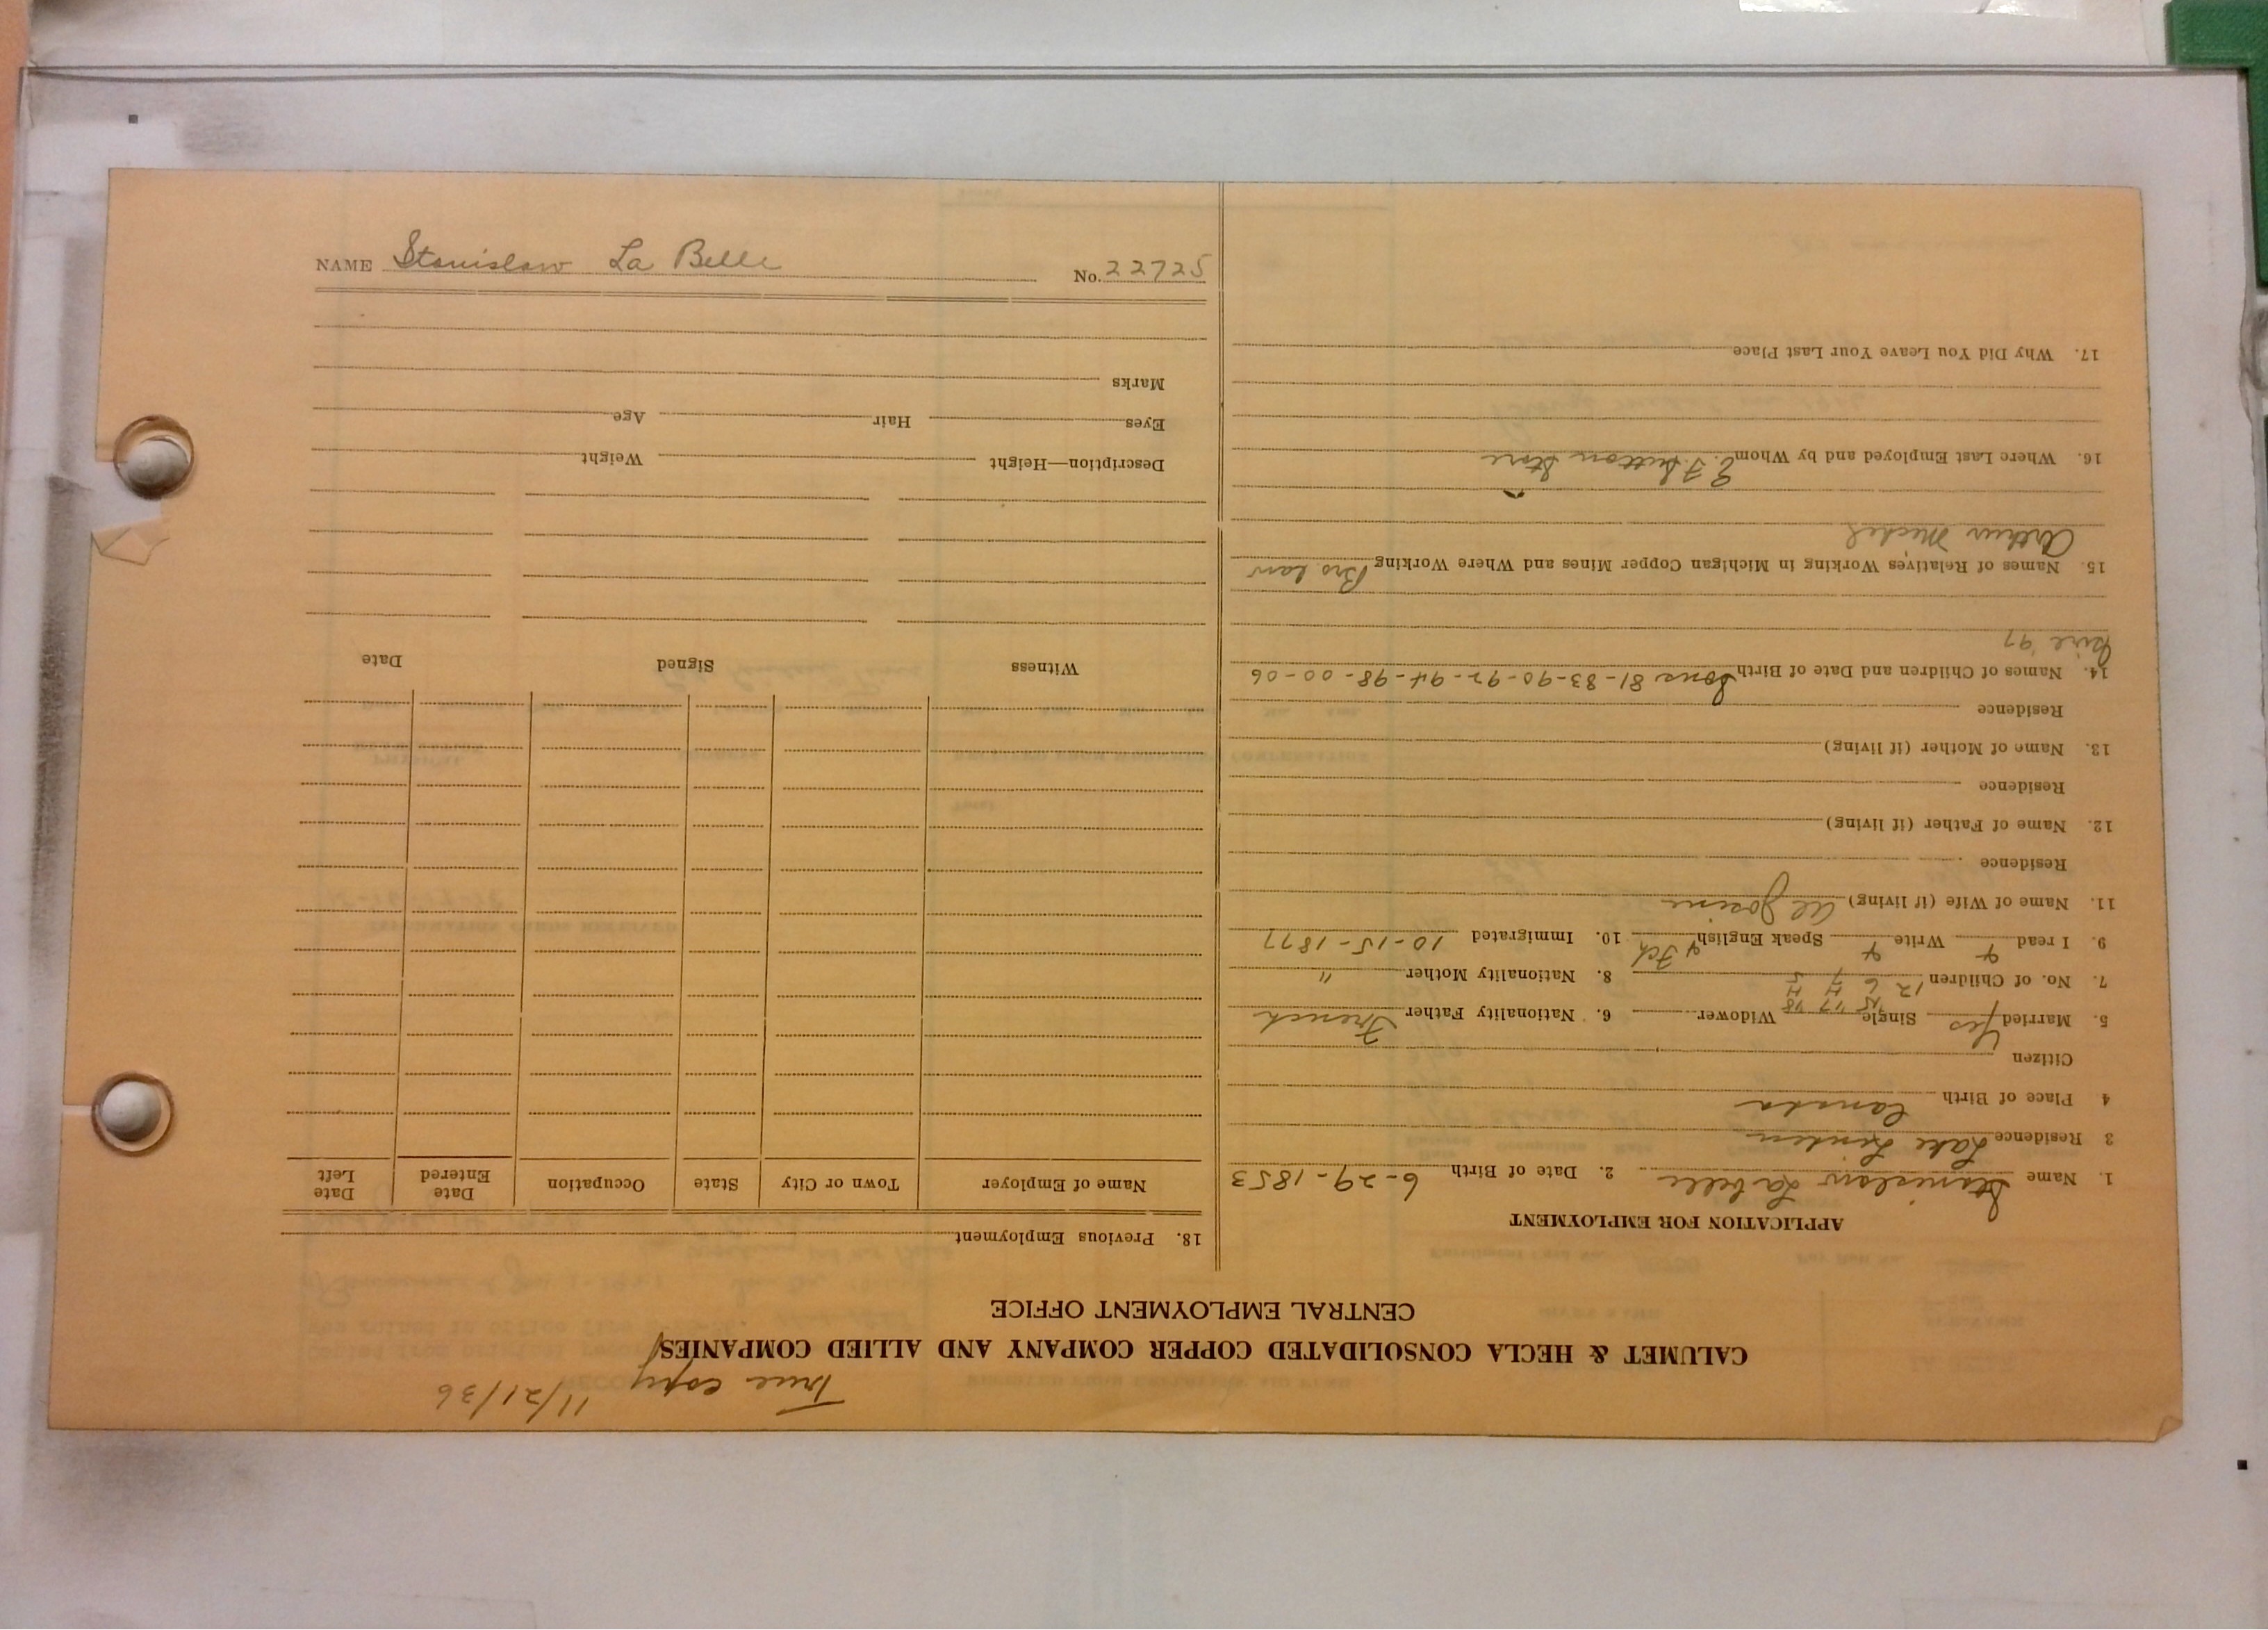 True copy 11/21/36
CALUMET & HECLA CONSOLIDATED COPPER COMPANY AND ALLIED COMPANIES
CENTRAL EMPLOYMENT OFFICE
APPLICATION FOR EMPLOYMENT
1. Name Stanislaw Labelle 2. Date of Birth 6-29-1853
3 Residence Lake Linden
4 Place of Birth Canada
Citizen
5. Married Yes Single Widower 6. Nationality Father French
'15 '17 '18
7. No. of Children 12 8. Nationality Mother "
9. I read Write Speak English 10. Immigrated 10-15-1877
11. Name of Wife (if living)
Residence
12. Name of Father (if living)
Residence
13. Name of Mother (if living)
Residence
14. Names of Children and Date of Birth Sons 81-83-90-92-94-98-00-06
Girl '97
15. Names of Relatives Working in Michigan Copper Mines and Where Working Bro law
Arthur Michel
16. Where Last Employed and by Whom. Store
17. Why Did You Leave Your Last Place
18. Previous Employment
Name of Employer Town or City State Occupation Date Entered Date Left
Witness Signed Date
Description—Height Weight
Eyes Hair Age
Marks
NAME Stanislaw La Belle No. 22725